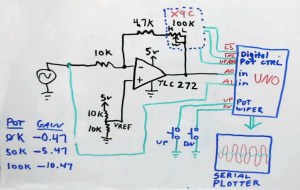 X9C
100K
H
L
W
4.7K
10K
5v
TLC 272
5v
10K
10K
VREF
CS
INC
UP/DN
Digital
POT CTRL
A0
in
UNO
A1
in
UP
DN
POT
WIPER
UP
DN
POT GAIN
0K -0.47
50K -5.47
100K -10.47
SERIAL
PLOTTER